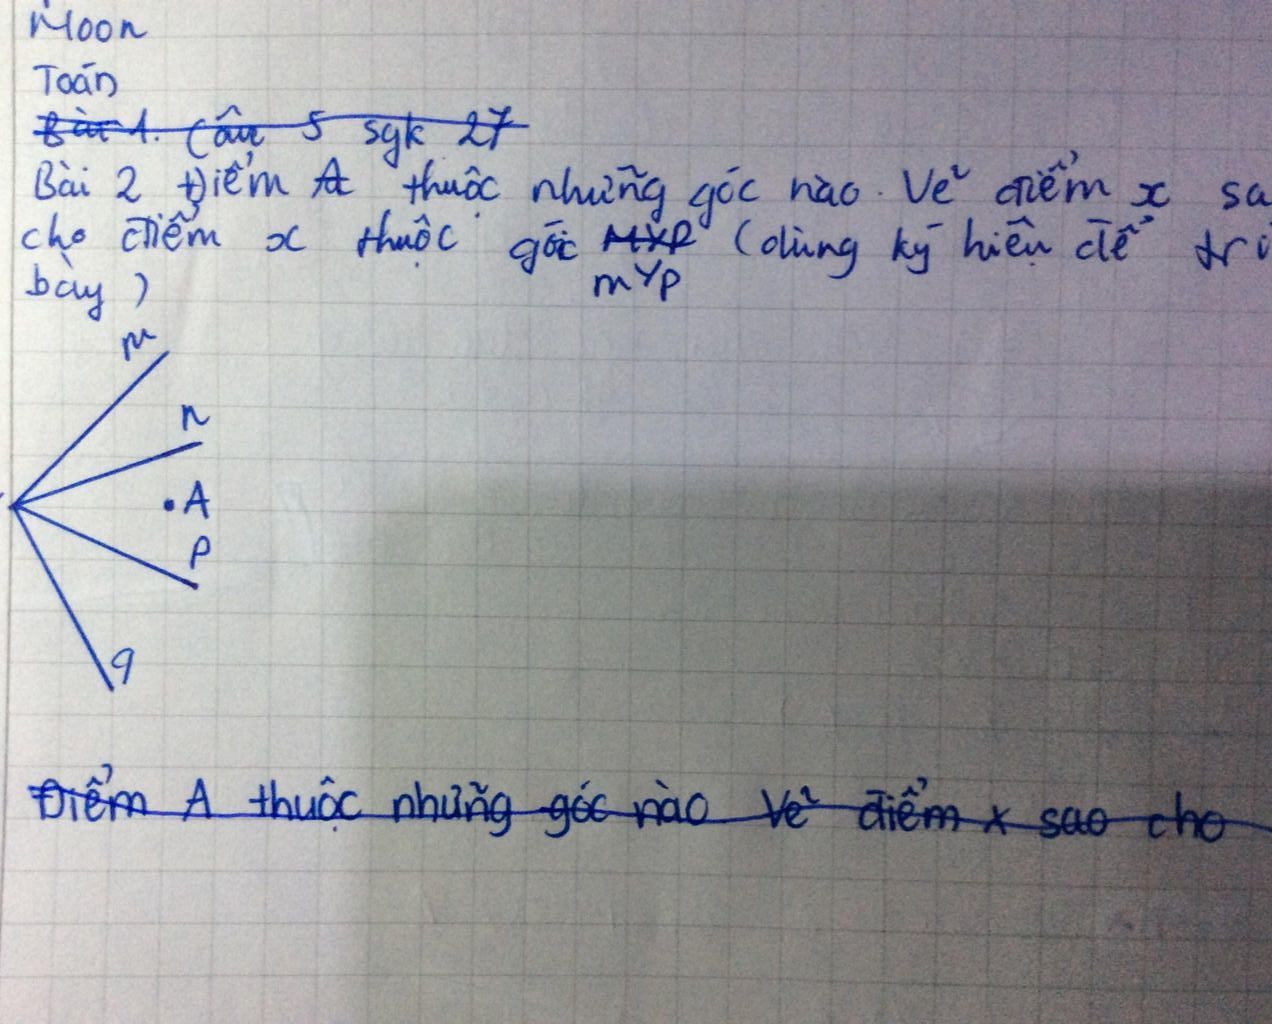 Moon
Toán
Bài 1. Câu 5 sgk 27
Bài 2 Điểm A thuộc những góc nào. Vẽ điểm x sa
cho điểm x thuộc góc MYP (dùng ký hiệu để tr
mYp
bày)
m
n
A
p
q
Điểm A thuộc những góc nào Vẽ điểm x sao cho